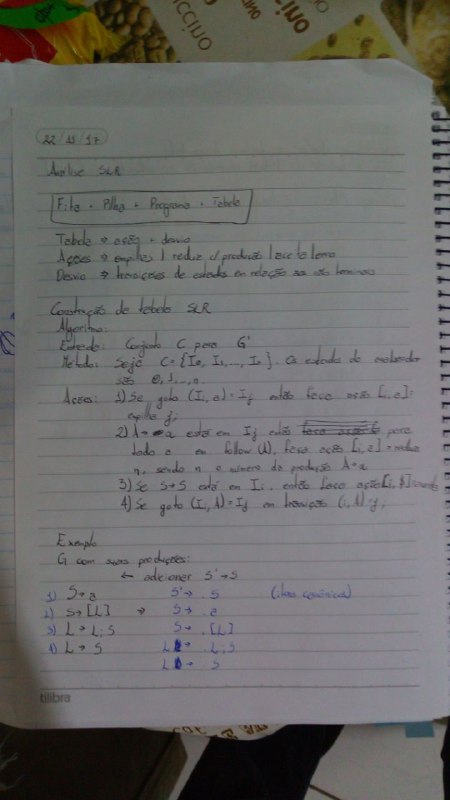 CCINO
cino
22/11/17
Análise SLR
Fita + Pilha + Programa + Tabela
Tabela → ação + desvio
Ações → empilha / reduz c/ produção / aceita / erro
Desvio → transições de estados em relação aos não terminais
Construção da tabela SLR
Algoritmo:
Entrada: Conjunto C para G'
Método: Seja C = {I0, I1, ..., In}. Os estados do analisador
são 0, 1, ..., n.
Ações: 1) Se goto (Ii, a) = Ij então faça ação [i, a] =
empilha j;
2) A → a está em Ij então para
todo a em follow (A), faça ação [i, a] = reduz
n, sendo n o número da produção A → a
3) Se S → S está em Ii então faça ação [i, $]
4) Se goto (Ii, A) = Ij em transição (i, A) = j;
Exemplo
G com suas produções:
← adicionar S' → S
1) S → a S' → .S (itens canônicos)
2) S → [L] → S → .a
3) L → L; S S → .[L]
4) L → S L → .L; S
L → .S
tilibra